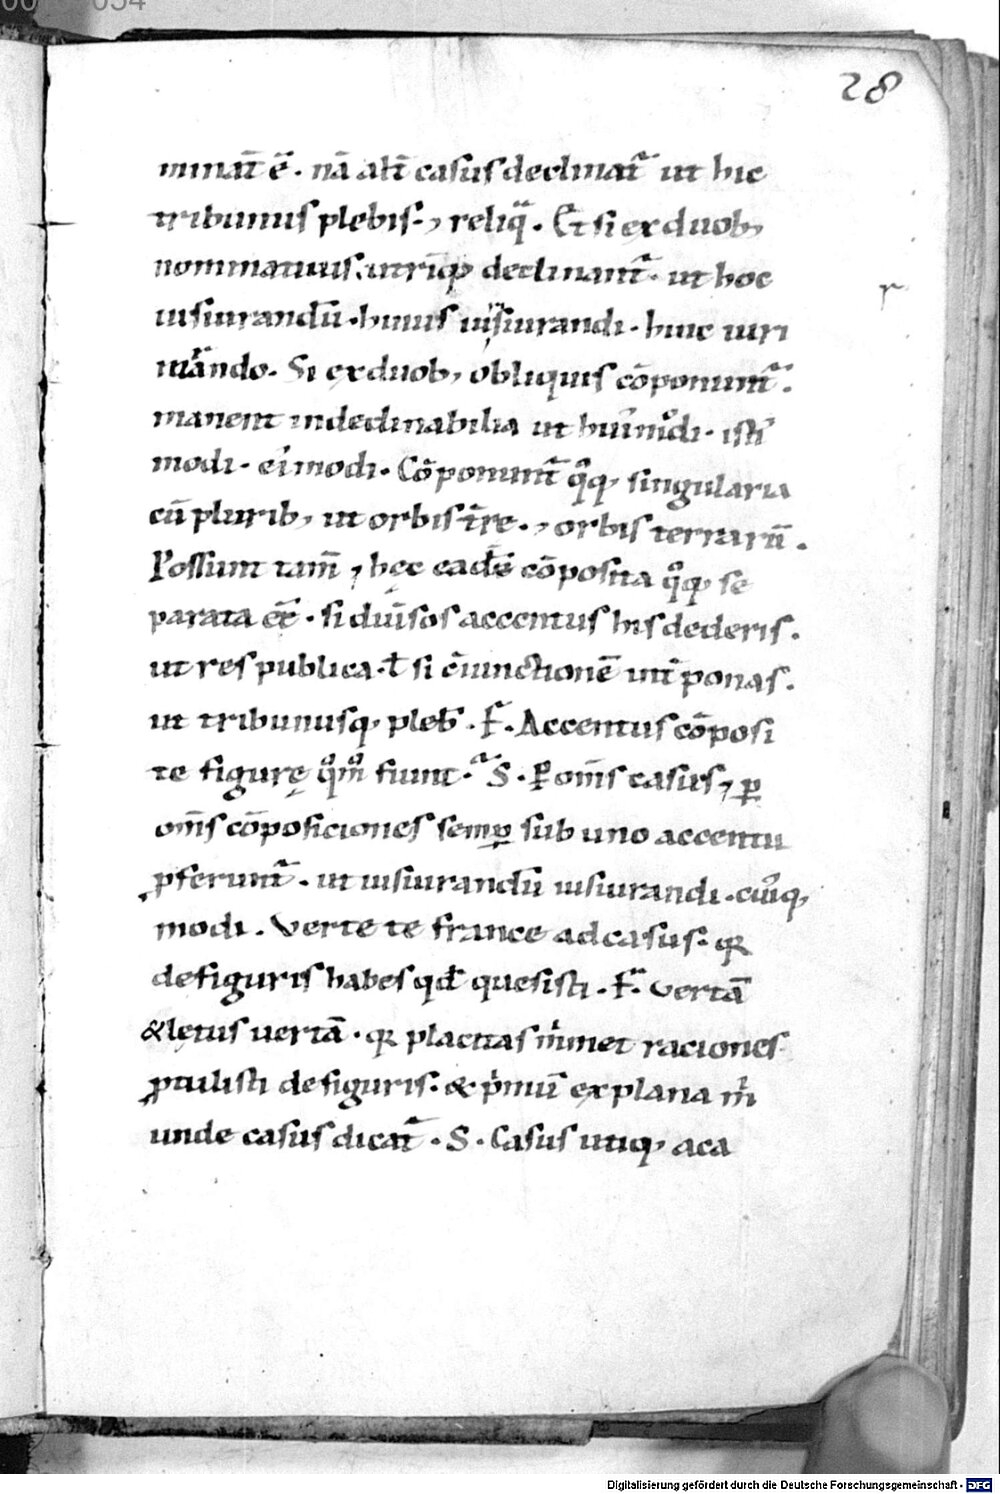 28
minat̄ ē̈. nā alt̄ casus declinat̄ ut hic
tribunus plebis. ⁊ reliq̄. Et si ex duob;
nominatiuis. utriq; declinant̄. ut hoc
iusiurandū. huius iurisiurandi. huic iuri
iurando. Si ex duob; obliquis cōponunt̄.
manent indeclinabilia ut huim̊di. isti
modi. ei modi. Cōponunt̄ q̊q; singularia
cū plurib; ut orbis tr̄re. ⁊ orbis terrarū.
Possunt tam̄ ⁊ hęc eadē cōposita q̊q; se
parata eē. si diuisos accentus his dederis.
ut res publica. ł si c̄iunctionē int̄ponas.
ut tribunusq; pleb̄. F. Accentus cōposi
te figurę q̊m̊ fiunt. S. P om̄s casus ⁊ ꝑ
om̄s cōposiciones semꝑ sub uno accentu
ꝓferunt̄. ut iusiurandū iusiurandi. cuiq;
modi. Verte te france ad casus. qꝛ
de figuris habes qđ quesisti. F. Vertā
& lętus vertā. qꝛ placitas m̄met raciones
ꝓtulisti de figuris. & p̄mū explana m̄
unde casus dicat̄. S. Casus utiq; a ca
Digitalisierung gefördert durch die Deutsche Forschungsgemeinschaft - DFG